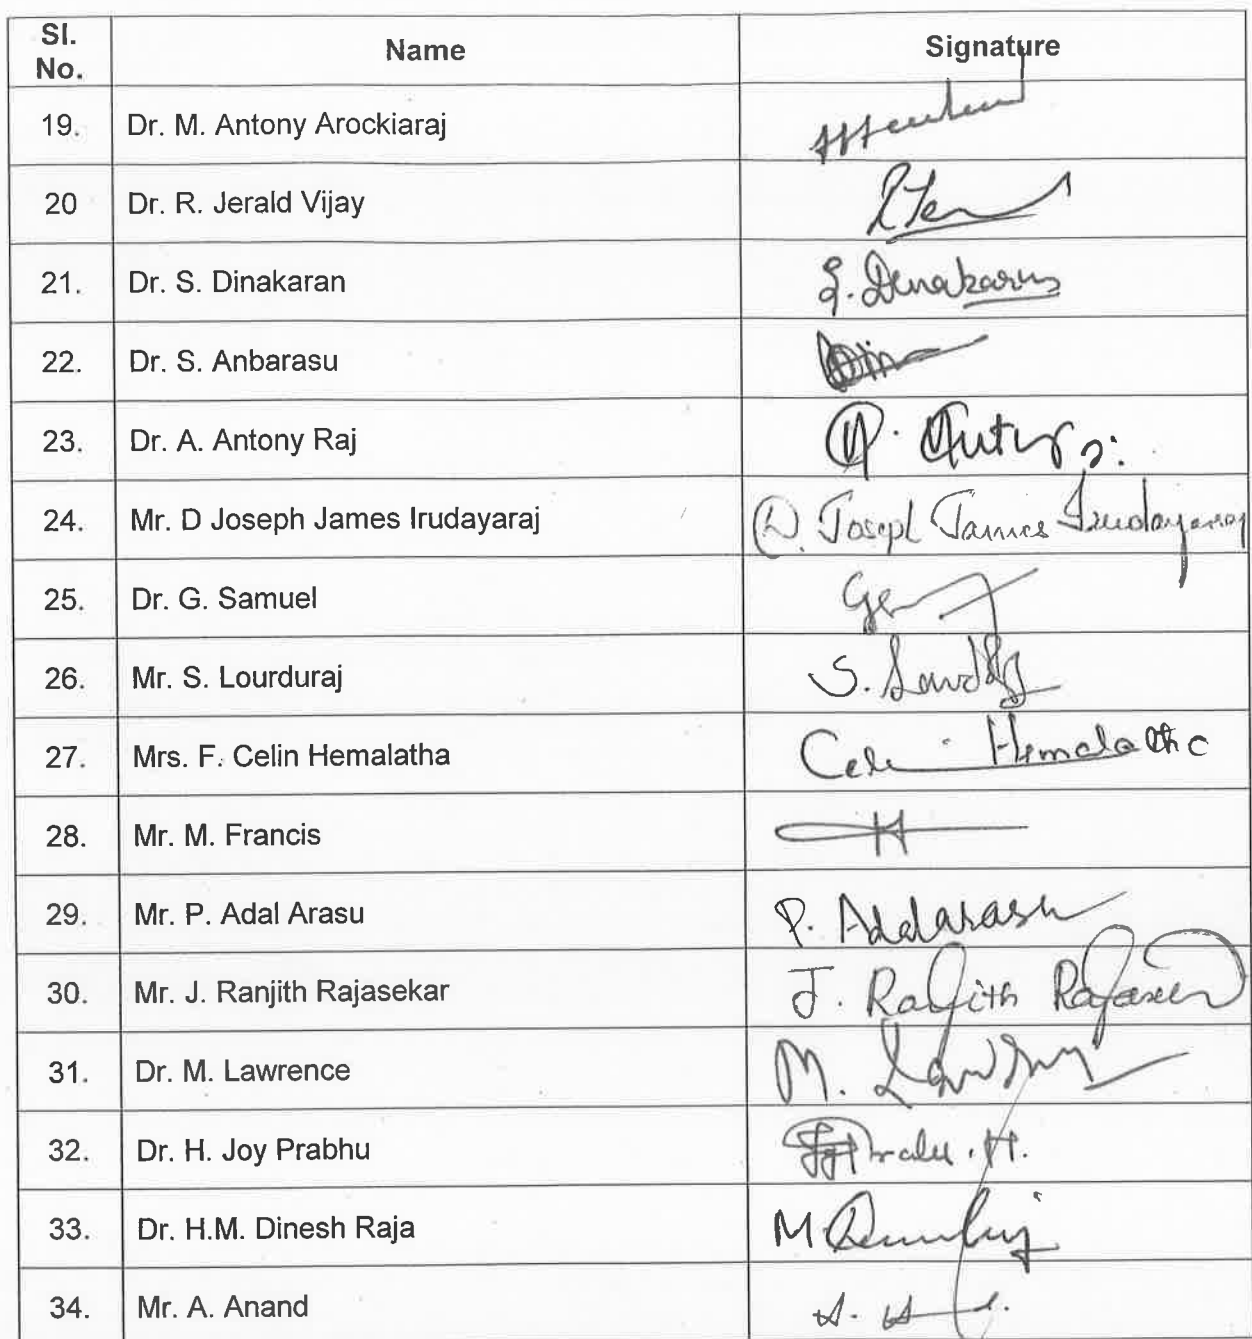 Sl. No. Name Signature
19. Dr. M. Antony Arockiaraj
20 Dr. R. Jerald Vijay
21. Dr. S. Dinakaran S. Dinakaran
22. Dr. S. Anbarasu
23. Dr. A. Antony Raj A.
24. Mr. D Joseph James Irudayaraj D. Joseph James Irudayaraj
25. Dr. G. Samuel
26. Mr. S. Lourduraj S.
27. Mrs. F. Celin Hemalatha Hemalatha
28. Mr. M. Francis
29. Mr. P. Adal Arasu P. Adalarasu
30. Mr. J. Ranjith Rajasekar J. Ranjith
31. Dr. M. Lawrence M.
32. Dr. H. Joy Prabhu H.
33. Dr. H.M. Dinesh Raja M
34. Mr. A. Anand A.